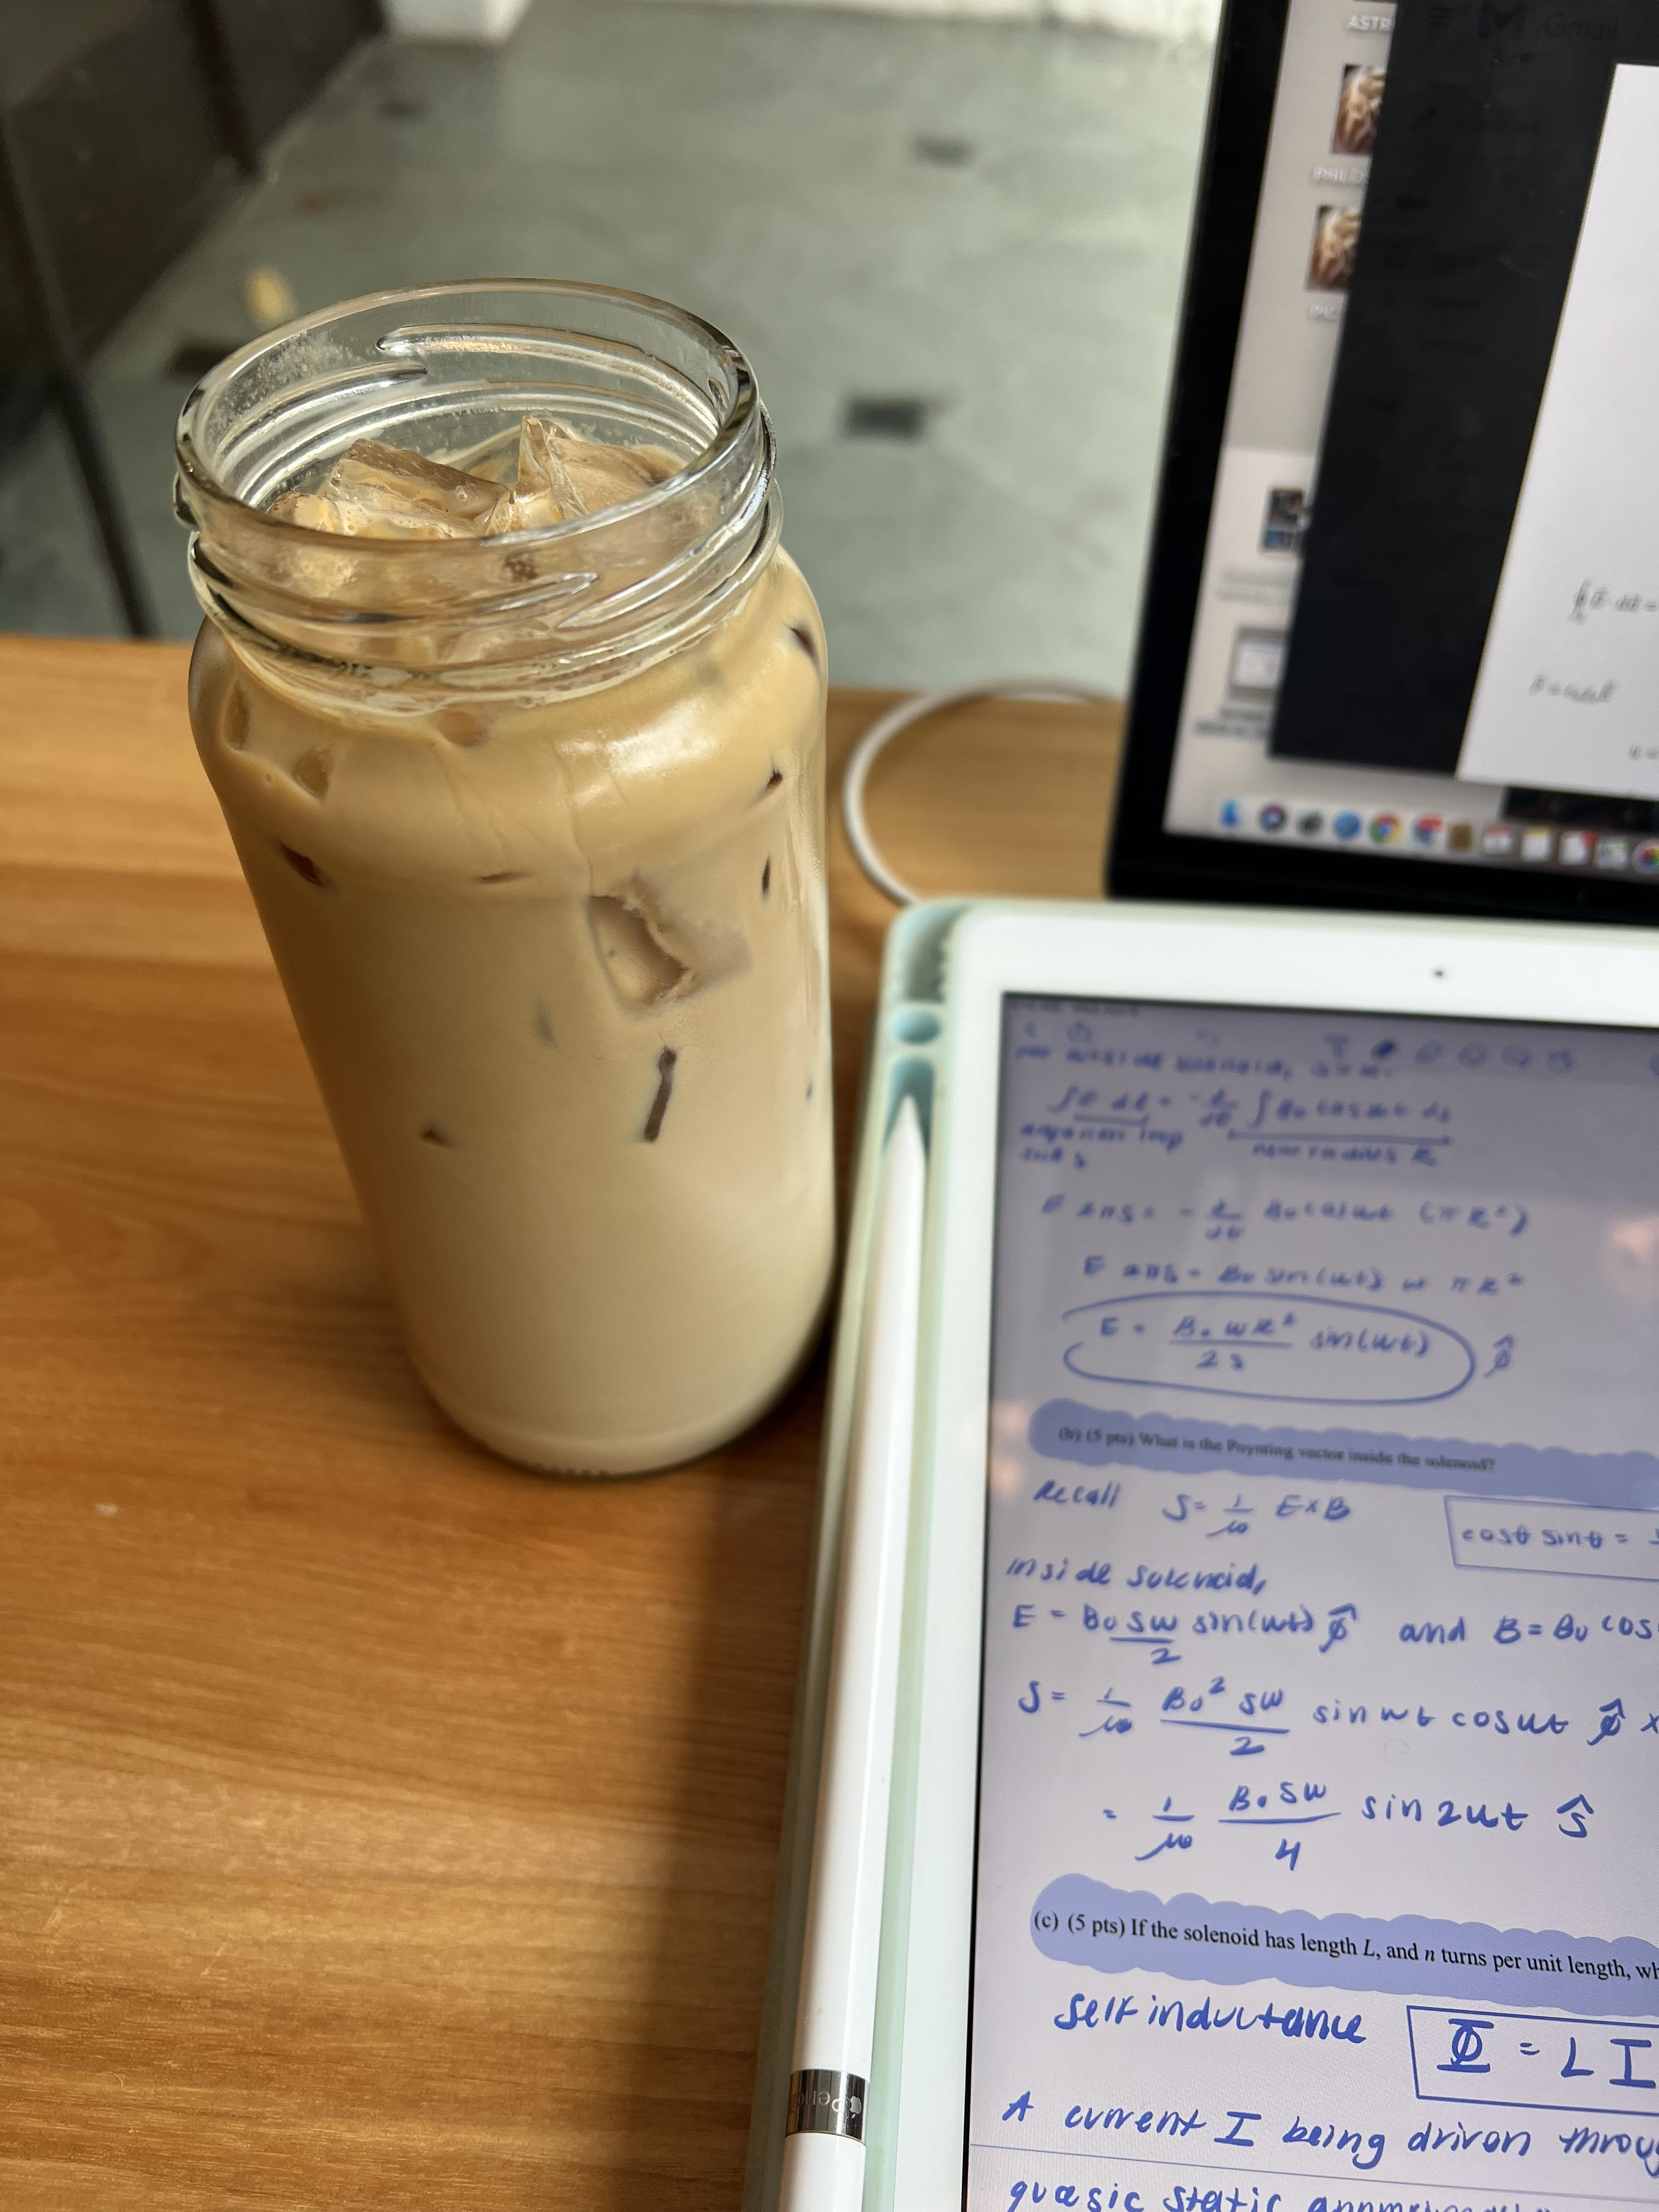 ASTR
Gmail
PHILO
outside solenoid,
∫E·dl = -d/dt ∫ B₀ cos ωt da
amperian loop
rad s
now radius R
E 2πs = - d/dt B₀ cos ωt (πR²)
E 2πs = B₀ sin(ωt) ω πR²
E = B₀ωR²/2s sin(ωt) φ̂
(b) (5 pts) What is the Poynting vector inside the solenoid?
Recall S = 1/μ₀ E×B
cosθ sinθ =
inside solenoid,
E = B₀sω/2 sin(ωt) φ̂ and B = B₀ cos
S = 1/μ₀ B₀²sω/2 sin ωt cos ωt φ̂ ×
= 1/μ₀ B₀sω/4 sin 2ωt ŝ
(c) (5 pts) If the solenoid has length L, and n turns per unit length, wh
self inductance Φ = LI
A current I being driven throug
quasic static